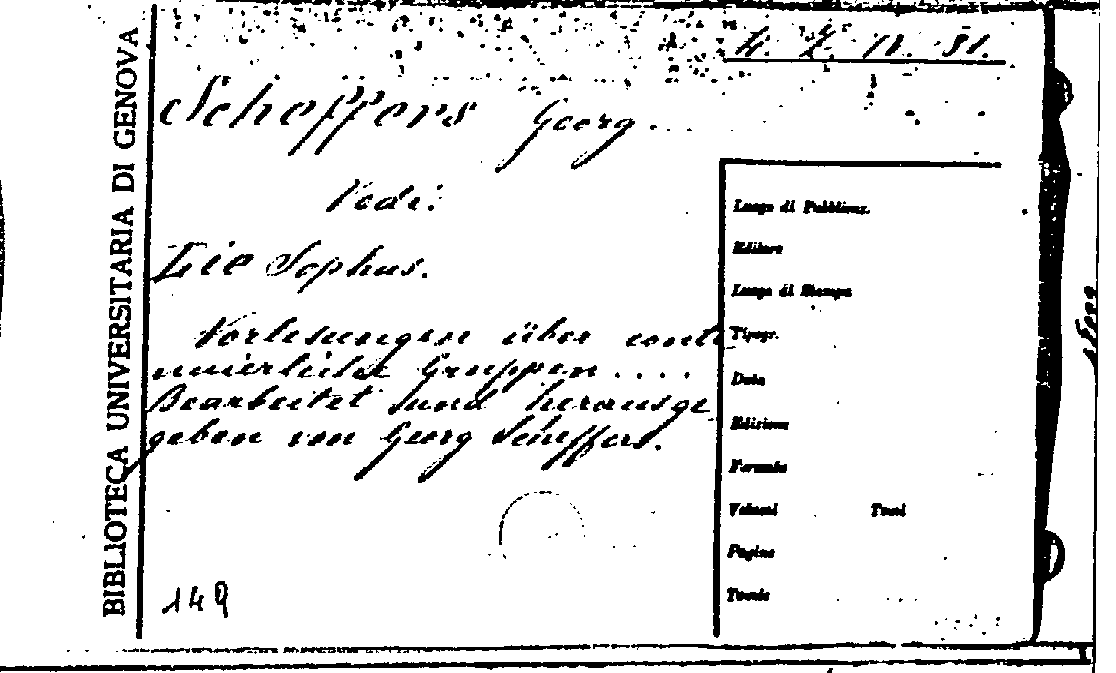 BIBLIOTECA UNIVERSITARIA DI GENOVA
4. Z. IV. 31.
Scheffers Georg.
Vedi:
Lie Sophus.
Vorlesungen über conti
nuierliche Gruppen....
Bearbeitet und herausge
geben von Georg Scheffers.
149
Luogo di Pubblicaz.
Editore
Luogo di Stampa
Tipogr.
Data
Edizione
Formato
Volumi Tomi
Pagine
Tavole